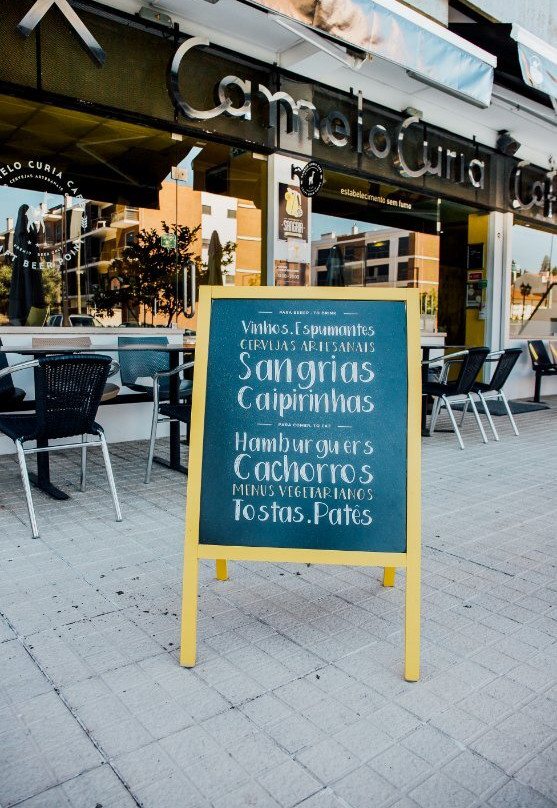 Camelo Curia
CAMELO CURIA CA
CERVEJAS ARTESANAIS
estabelecimento sem fumo
SANGRIA
PARA BEBER · TO DRINK
Vinhos. Espumantes
CERVEJAS ARTESANAIS
Sangrias
Caipirinhas
PARA COMER · TO EAT
Hamburguers
Cachorros
MENUS VEGETARIANOS
Tostas. Patês